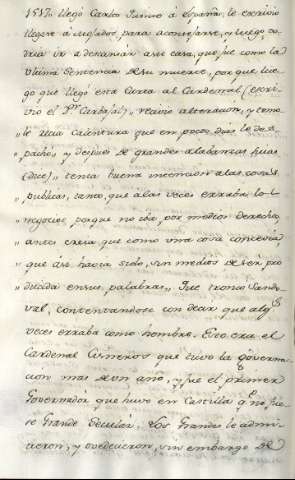 1517. llegó Carlos Quinto á España, le escrivió
llegase á Mojados para aconsejarse, y luego, po-
dria ir á descansar á su casa, que fue como la
ultima sentencia de su muerte, porque lue-
go que llegó esta Carta al Cardenal (escri-
vió el Dr. Carbajal) recivió alteracion, y tomo-
„ le una Calentura que en pocos dias le des-
„ pachó, y despues de grandes alabanzas suias
„ (dice) tenia buena intencion á las cosas
„ publicas, tanto, que á las veces erraba los
„ negocios, porque no iba por medios derechos,
„ antes creia que como una cosa
„ que asi havia sido, sin medios de ser, pro-
„ ducida en sus palabras. Fue Sando-
val, contentandose con decir que alg.s
veces erraba como hombre. Este era el
Cardenal Cisneros que tuvo la Governa-
cion mas de un año, y fue el primer
Governador que huvo en Castilla q.e no fue-
se Grande Secular. Los Grandes le admi-
tieron, y obedecieron, sin embargo de